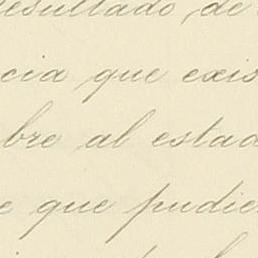 resultado de
cia que exis
bre al estad
e que pudie